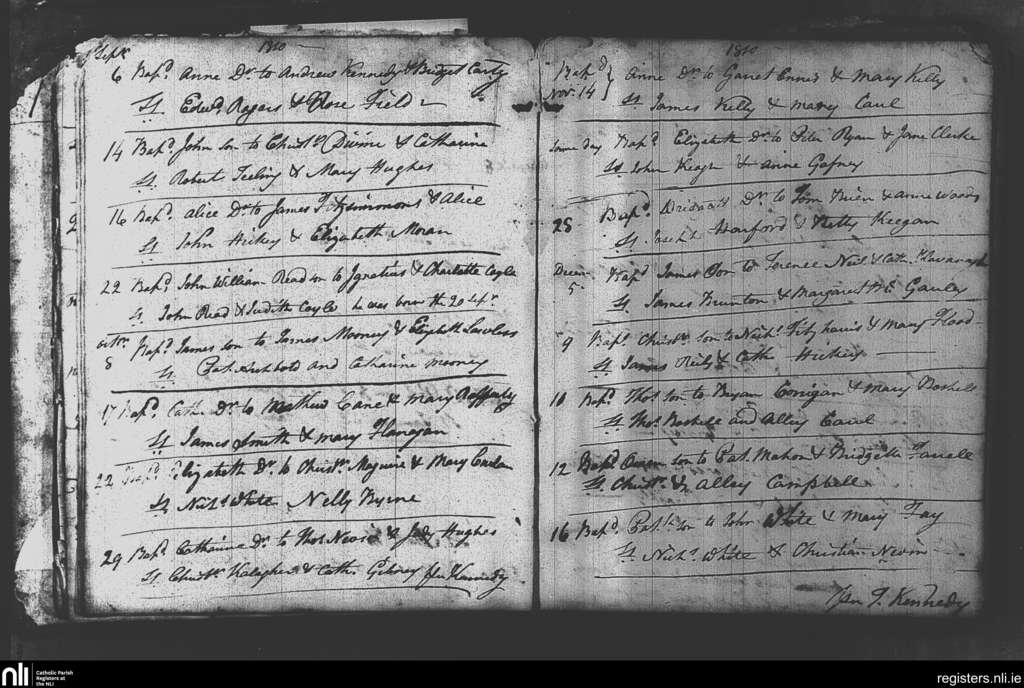 Sepr
1810
6 Bapd. Anne Dr. to Andrew Kennedy & Bridget Carty
Sp. Edwd. Rogers & Rose Field
14 Bapd. John son to Christr. Divine & Catharine
Sp. Robert Feeling & Mary Hughes
16 Bapd. Alice Dr. to James Fitzsimmons & Alice
Sp. John Hickey & Elizabeth Moran
22 Bapd. John William Read son to Ignatius & Charlotte Cayle
Sp. John Read & Judith Cayle he was born the 20
Octr.
8 Bapd. James son to James Mooney & Elizabeth Lawless
Sp. Pat. Archbold and Catharine Mooney
17 Bapd. Cathe. Dr. to Mathew Cane & Mary Rafferty
Sp. James Smith & Mary Flanagan
22 Bapd. Elizabeth Dr. to Christr. Maguire & Mary
Sp. Nichs. White Nelly Byrne
29 Bapd. Catharine Dr. to Thos. & Judy Hughes
Sp. Christr. & Cathe. Kennedy
1810
Bapd. Nov. 14 } Anne Dr. to Garret Ennis & Mary Kelly
Sp. James Kelly & Mary Caul
Same day Bapd. Elizabeth Dr. to Peter Ryan & Jane Clarke
Sp. John Keogh & Anne Gafney
28 Bapd. Bridgett Dr. to Tom & Anne Woods
Sp. Joseph Harford & Kitty Keegan
Decem
5 Bapd. James Son to Terence Neil & Cathe. Kavanagh
Sp. James Brunton & Margaret Mc Gauley
9 Bapd. Christr. Son to Nichs. Fitzharris & Mary Flood
Sp. James Reily & Cathe. Hickey
10 Bapd. Thos. son to Bryan Corrigan & Mary
Sp. Thos. and Alley Caul
12 Bapd. Owen son to Pat. Mahon & Bridgett Farrell
Sp. Christr. & Alley Campbell
16 Bapd. Patk. son to John White & Mary Fay
Sp. Nichs. White & Christian Nevin
J. Kennedy
nli
Catholic Parish
Registers at
the NLI
registers.nli.ie